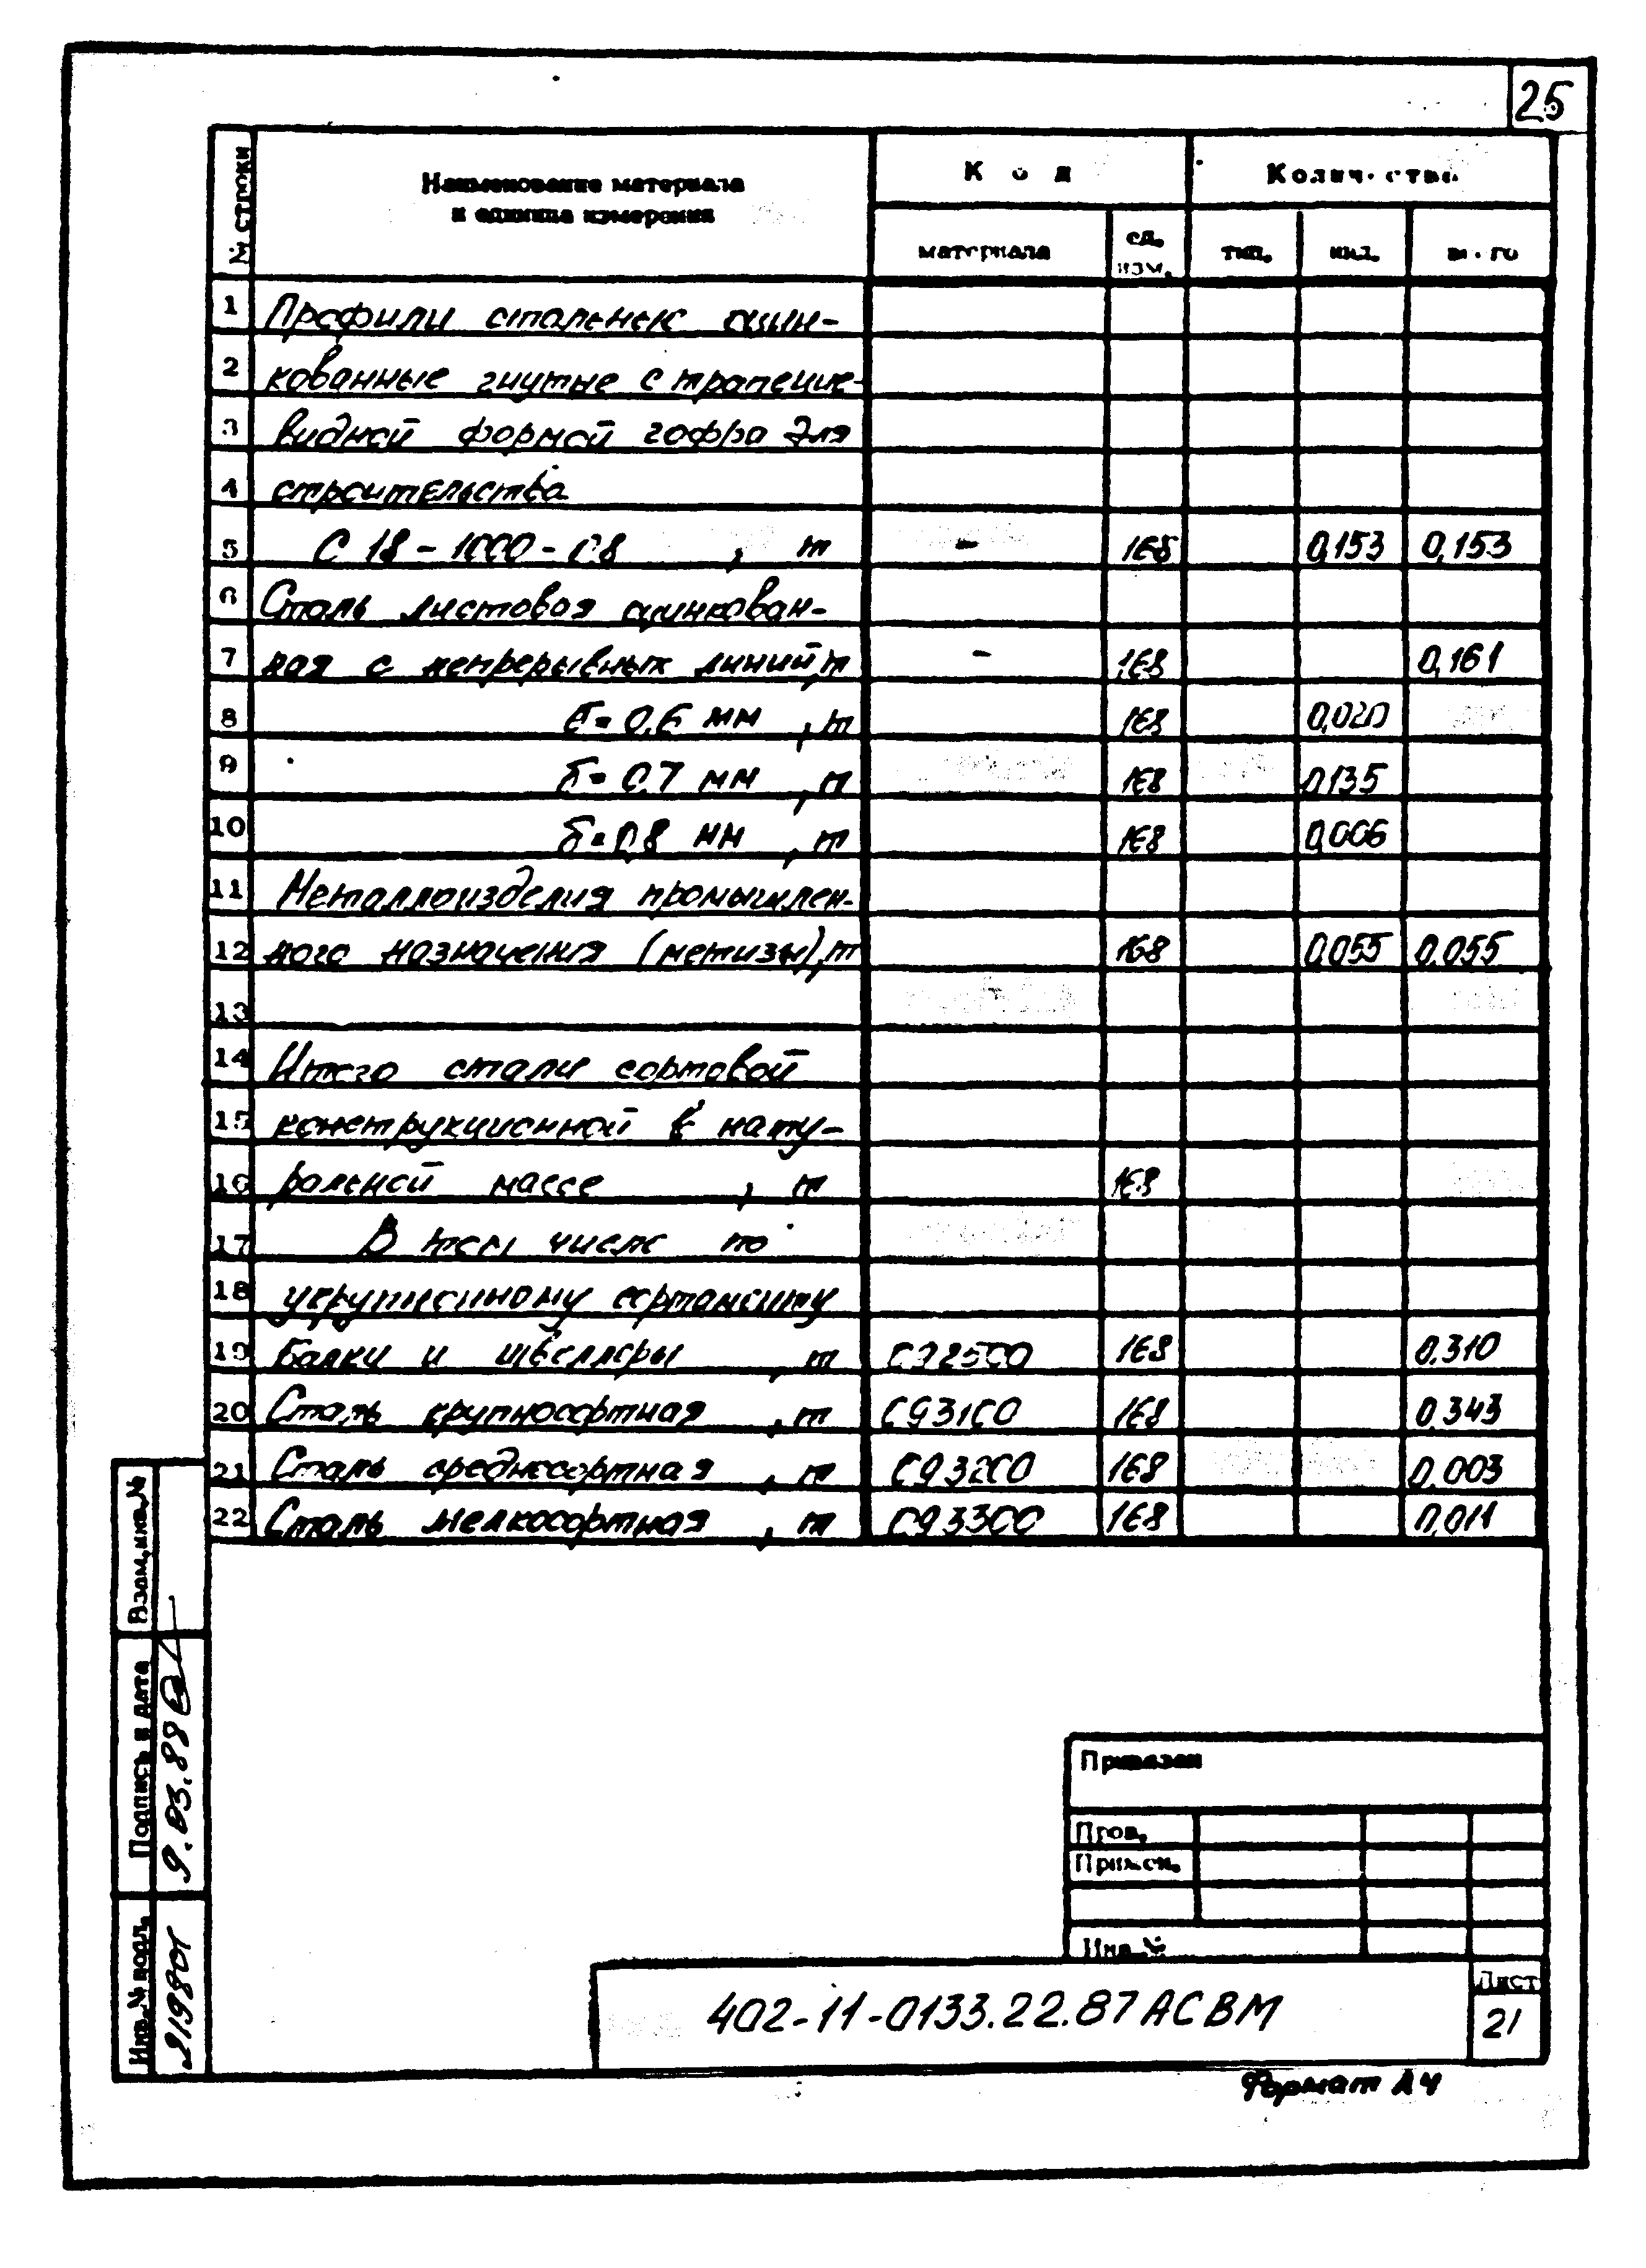 25
№ строки
Наименование материала
и единица измерения
Код
Количество
материала
ед. изм.
тип.
инд.
всего
1 Профили стальные оцин-
2 кованные гнутые с трапецие-
3 видной формой гофра для
4 строительства
5 С 18-1000-0.8 , т - 168 0,153 0,153
6 Сталь листовая оцинкован-
7 ная с непрерывных линий, т - 168 0,161
8 δ=0,6 мм , т 168 0,020
9 δ=0,7 мм , т 168 0,135
10 δ=0,8 мм , т 168 0,006
11 Металлоизделия промышлен-
12 ного назначения (метизы), т 168 0,055 0,055
13
14 Итого стали сортовой
15 конструкционной в нату-
16 ральной массе , т 168
17 В том числе по
18 укрупненному сортаменту
19 Балки и швеллеры , т 092500 168 0,310
20 Сталь крупносортная , т 093100 168 0,343
21 Сталь среднесортная , т 093200 168 0,003
22 Сталь мелкосортная , т 093300 168 0,011
Взам.инв.№
Подпись и дата
9.03.88
Инв.№ подл.
Привязан
Пров.
Примен.
Инв.№
402-11-0133.22.87 АС ВМ
Лист
21
Формат А4